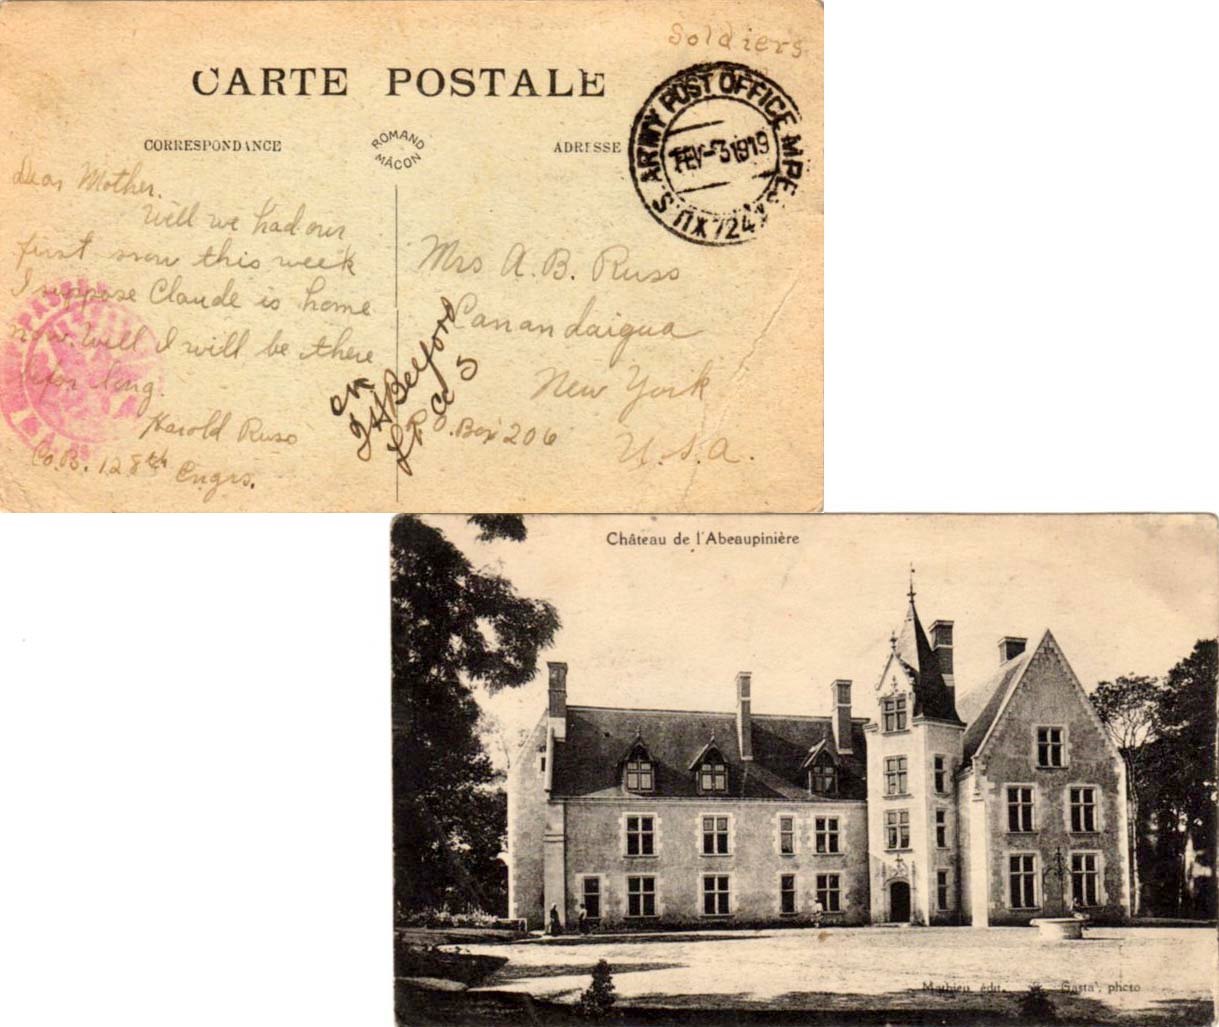 Soldiers
CARTE POSTALE
CORRESPONDANCE
ROMAND
MÂCON
ADRESSE
U.S. ARMY POST OFFICE MPES
FEV-3 1919
724
Dear Mother.
Well we had our
first snow this week
I suppose Claude is home
now. Well I will be there
'efor long.
Harold Russ
Co.B. 128th Engrs.
Mrs A. B. Russ
Canandaigua
New York
P.O. Box 206
U.S.A.
Belford
Château de l'Abeaupinière
Mathieu édit.
Gasta, photo